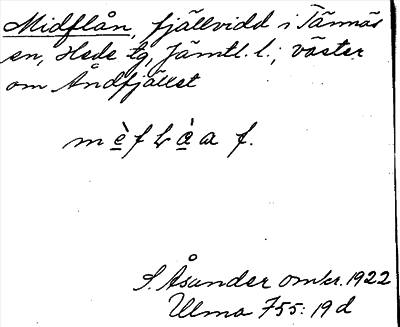 Midflån, fjällvidd i Tännäs
sn, Hede tg, Jämtl. l.; väster
om Åndfjället
S. Åsander omkr. 1922
Ulma 755:19d